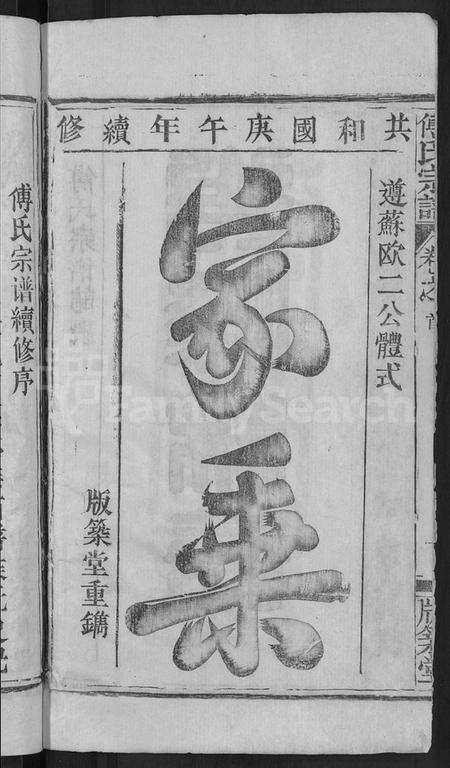 共和國庚午年續修
傅氏宗譜
卷之首
版築堂
遵蘇歐二公體式
家乘
版築堂重鐫
傅氏宗谱續修序
FamilySearch